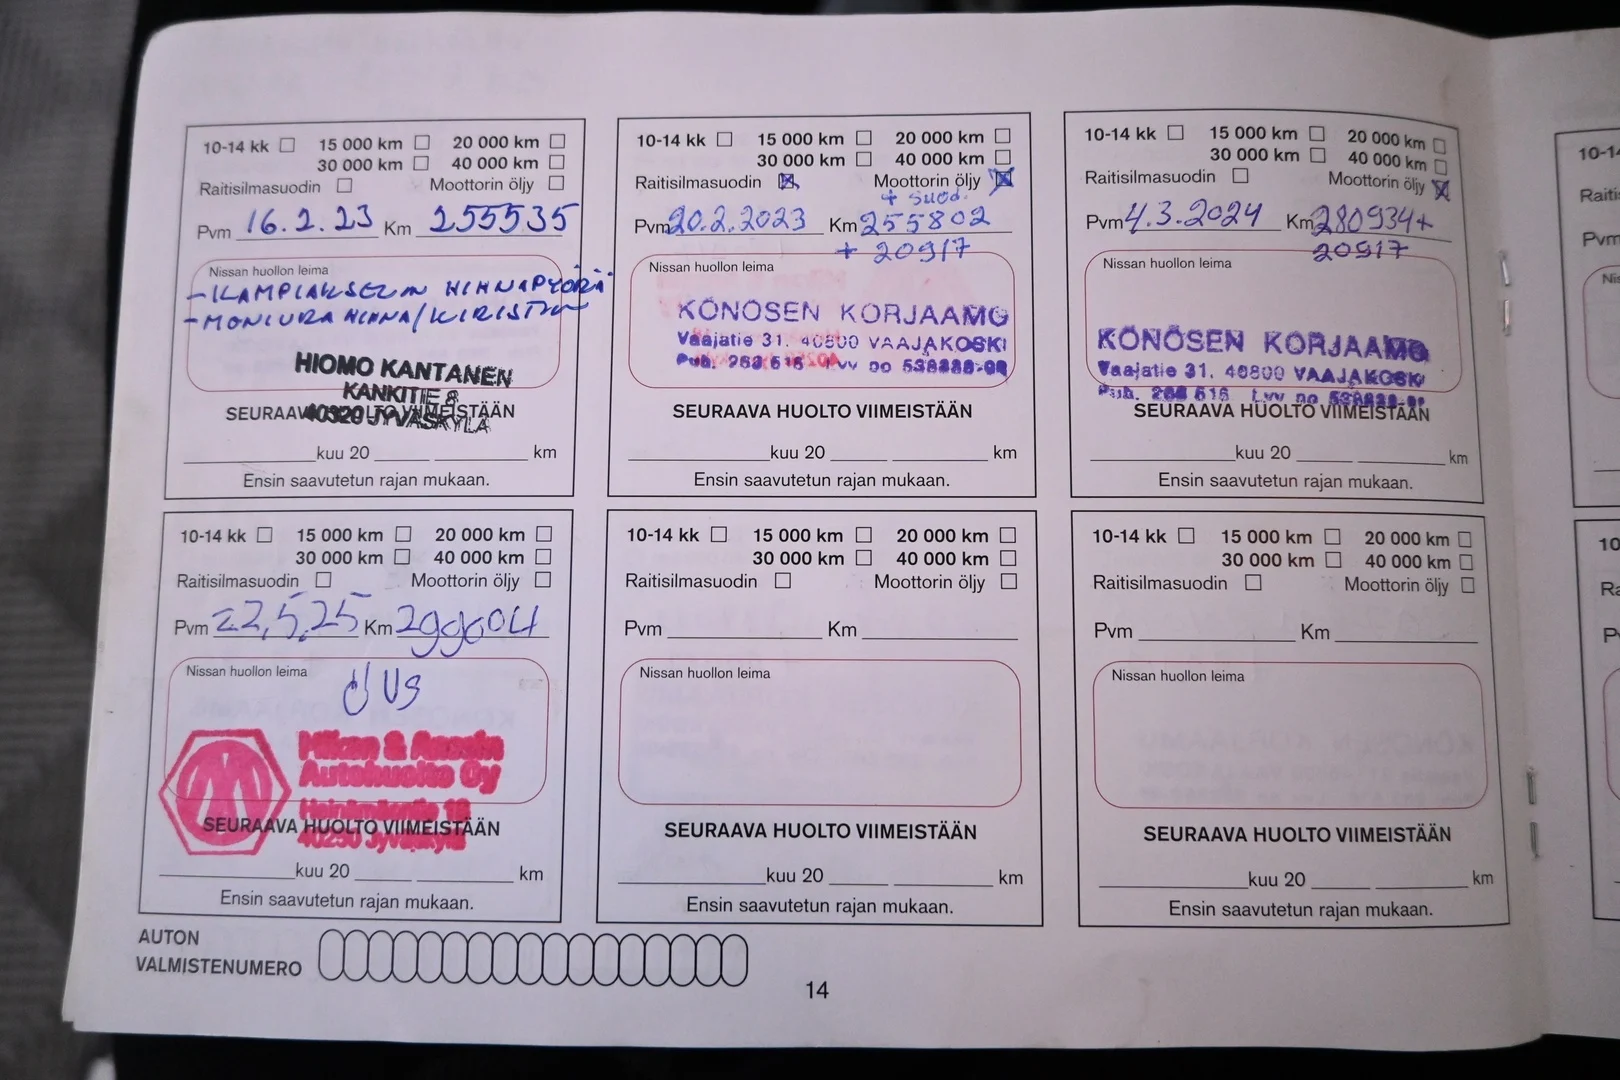 10-14 kk 15 000 km 20 000 km
30 000 km 40 000 km
Raitisilmasuodin Moottorin öljy
Pvm 16.2.23 Km 255535
Nissan huollon leima
-KAMPIAKSELIN HIHNAPYÖRÄ
-MONIURA HIHNA/KIRISTIN
HIOMO KANTANEN
KANKITIE 8
40320 JYVÄSKYLÄ
SEURAAVA HUOLTO VIIMEISTÄÄN
kuu 20 km
Ensin saavutetun rajan mukaan.
10-14 kk 15 000 km 20 000 km
30 000 km 40 000 km
Raitisilmasuodin Moottorin öljy
+ suod.
Pvm 20.2.2023 Km 255802
+ 20917
Nissan huollon leima
KONOSEN KORJAAMO
Vaajatie 31. 40800 VAAJAKOSKI
Puh.
SEURAAVA HUOLTO VIIMEISTÄÄN
kuu 20 km
Ensin saavutetun rajan mukaan.
10-14 kk 15 000 km 20 000 km
30 000 km 40 000 km
Raitisilmasuodin Moottorin öljy
Pvm 4.3.2024 Km 280934+
20917
Nissan huollon leima
KONOSEN KORJAAMO
Vaajatie 31. 40800 VAAJAKOSKI
Puh.
SEURAAVA HUOLTO VIIMEISTÄÄN
kuu 20 km
Ensin saavutetun rajan mukaan.
10-14 kk 15 000 km 20 000 km
30 000 km 40 000 km
Raitisilmasuodin Moottorin öljy
Pvm 22,5,25 Km 299604
Nissan huollon leima
Autohuolto Oy
40250 Jyväskylä
SEURAAVA HUOLTO VIIMEISTÄÄN
kuu 20 km
Ensin saavutetun rajan mukaan.
10-14 kk 15 000 km 20 000 km
30 000 km 40 000 km
Raitisilmasuodin Moottorin öljy
Pvm Km
Nissan huollon leima
SEURAAVA HUOLTO VIIMEISTÄÄN
kuu 20 km
Ensin saavutetun rajan mukaan.
10-14 kk 15 000 km 20 000 km
30 000 km 40 000 km
Raitisilmasuodin Moottorin öljy
Pvm Km
Nissan huollon leima
SEURAAVA HUOLTO VIIMEISTÄÄN
kuu 20 km
Ensin saavutetun rajan mukaan.
AUTON
VALMISTENUMERO
14